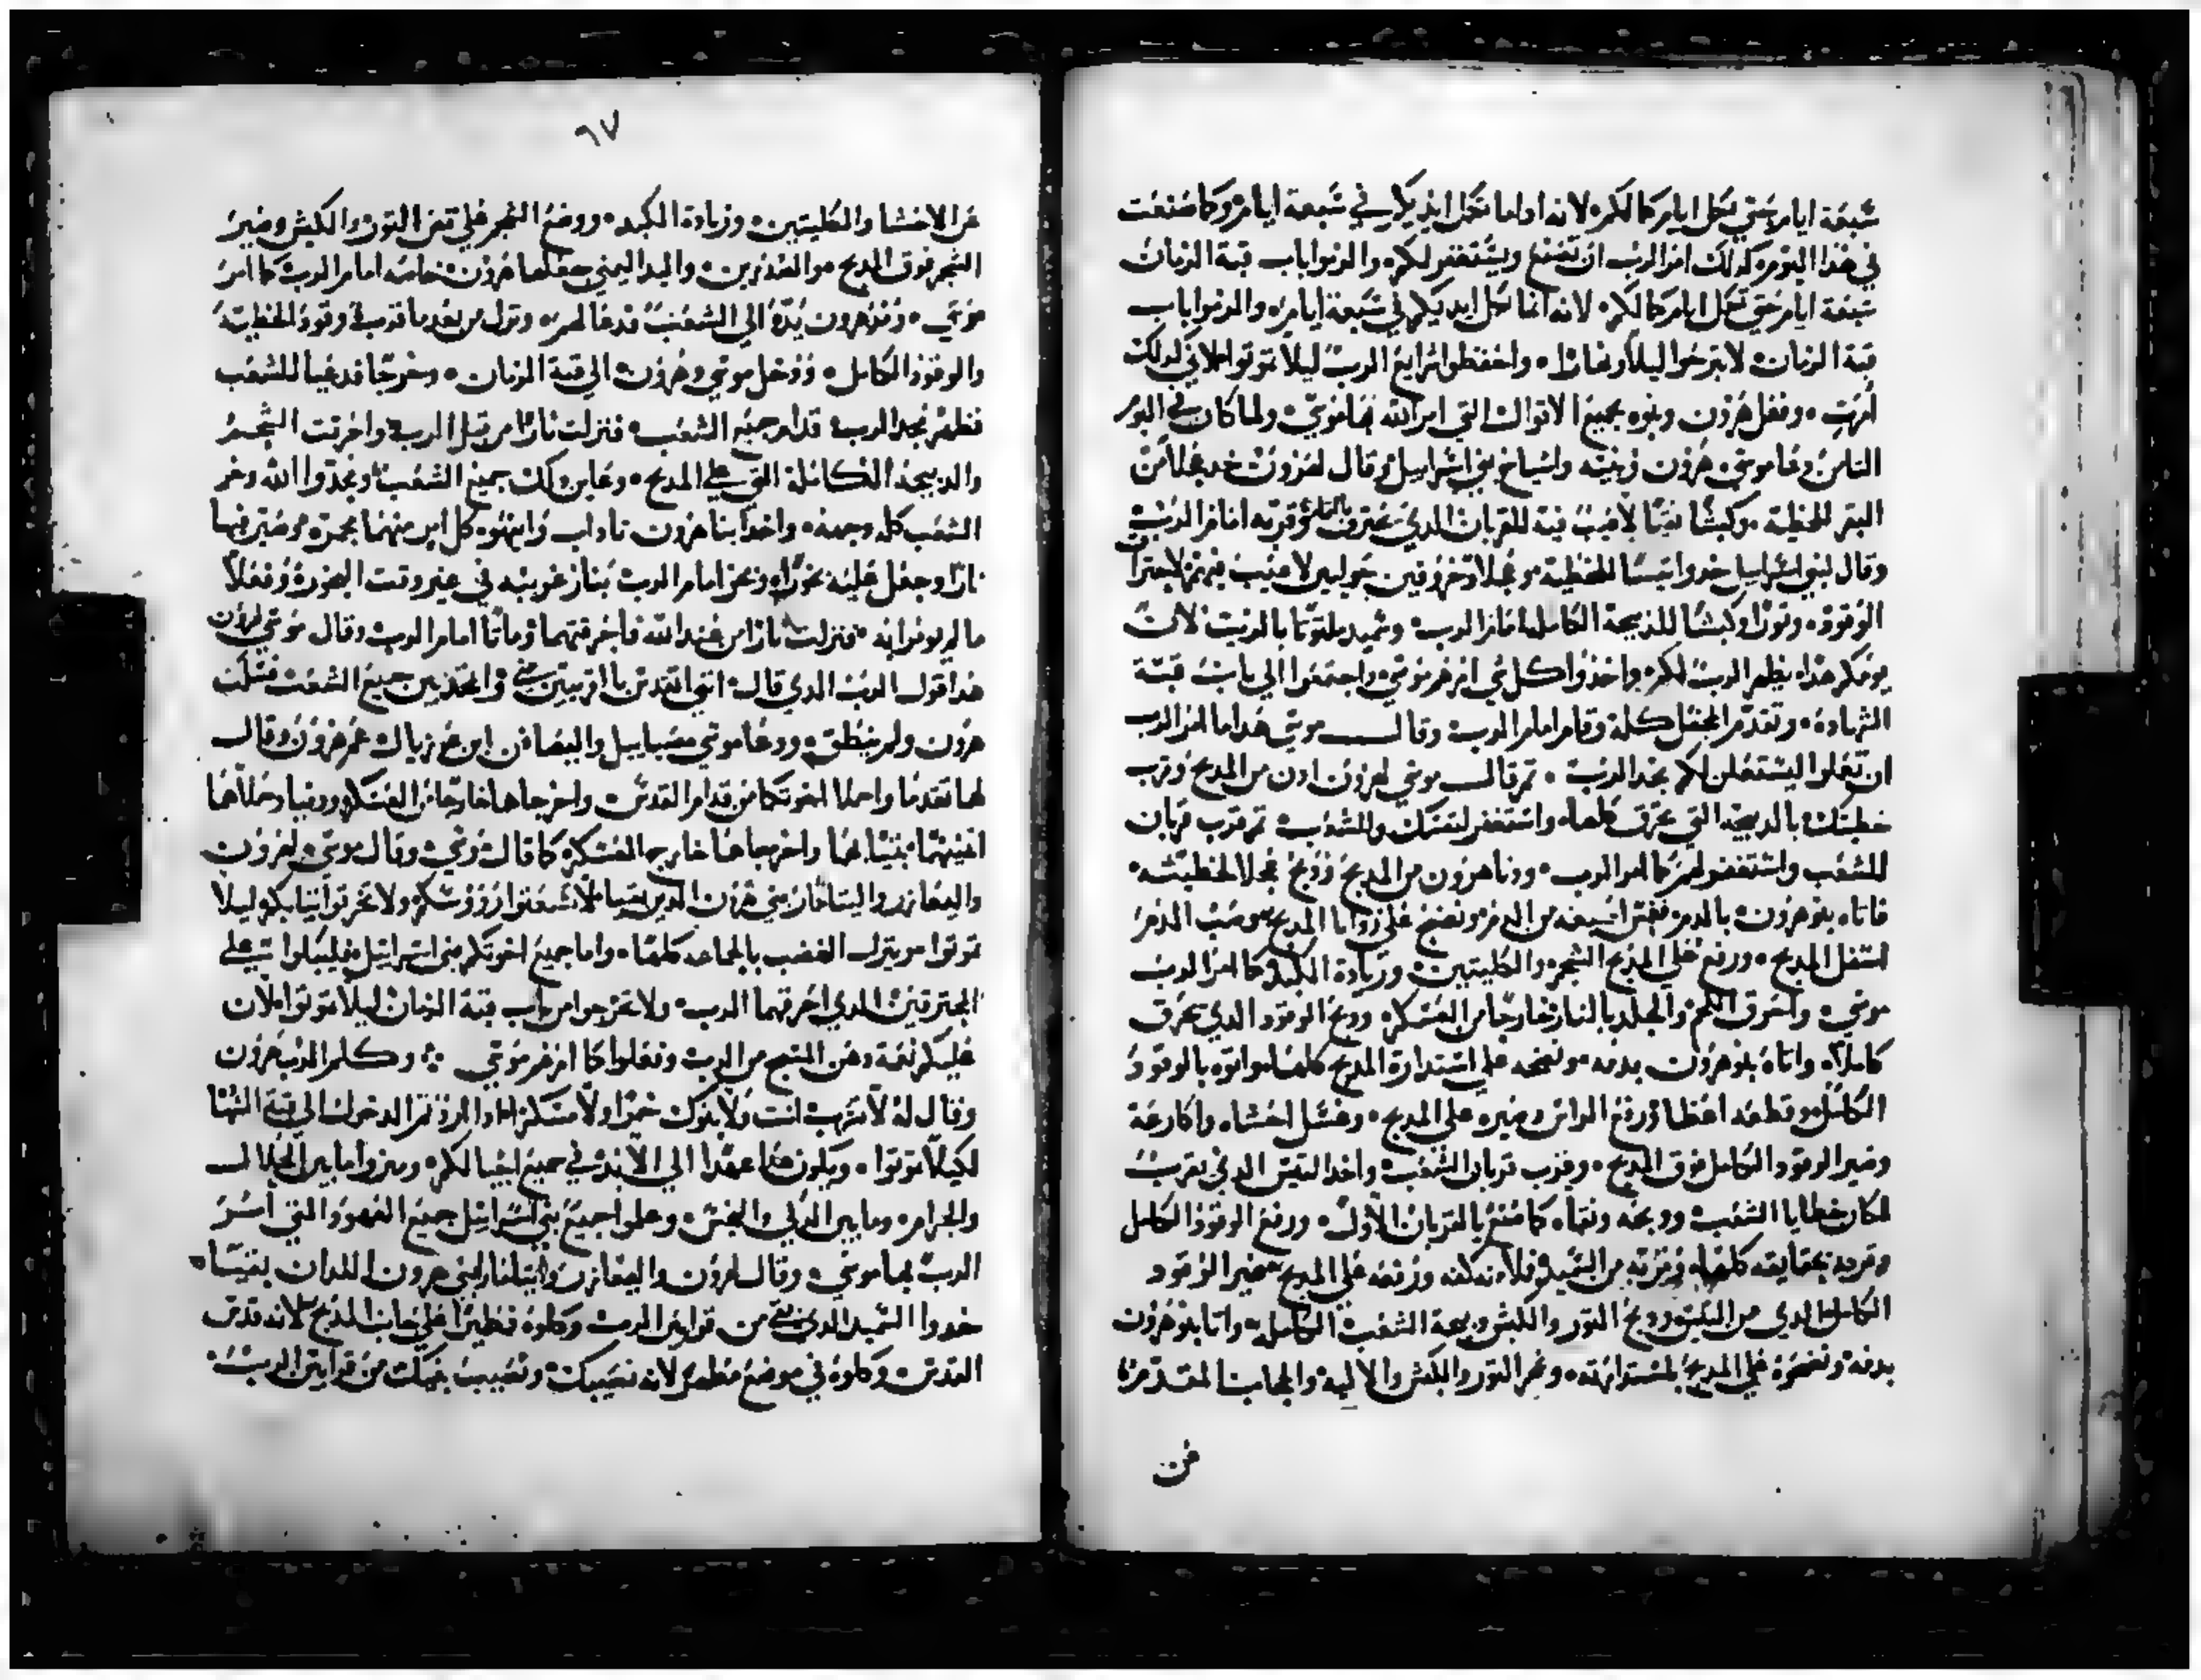 سبعة ايام حتي تكمل ايام كمالكم لانه انما تكمل ايديكم في سبعة ايام وكما صنعت
في هذا اليوم كذلك امر الرب ان تصنع ويستغفر لكم والزموا باب قبة الزمان
سبعة ايام حتي تكمل ايام كمالكم لانه انما تكمل ايديكم في سبعة ايام والزموا باب
قبة الزمان لا تبرحوا ليلا ونهارا واحفظوا شرايع الرب ليلا تموتوا لاني كدلك
امرت وفعل هرون وبنوه بجميع الاقوال التي امر الله بها موسي ولما كان في اليوم
الثامن دعا موسي هرون وبنيه واشياخ بني اسراييل وقال لهرون خد عجلا من
البقر للخطية وكبشا نقيا لا عيب فيه للقربان الدي يحترق بالنار وقربه امام الرب
وقال لبني اسراييل خدوا تيسا للخطية وعجلا وخروفين حوليين لا عيب فيهم لاحتراق
الوقود وثورا وكبشا للذبيحة الكاملة امام الرب وسميد ملتوتا بالزيت لان
يومكم هدا يظهر الرب لكم واخذوا كل شي امرهم موسي واجتمعوا الي باب قبة
الشهادة وتقدم المحفل كله وقام امام الرب وقال موسي هدا ما امر الرب
ان تعملوا ليستعلن لكم مجد الرب ثم قال موسي لهرون ادن من المدبح وقرب
خطيتك بالدبيحة التي تحرق كلها واستغفر لنفسك وللشعب ثم قرب قربان
للشعب واستغفر لهم كما امر الرب ودنا هرون من المدبح ودبح عجلا لخطيته
فاتاه بنو هرون بالدم فغمس اصبعه من الدم ونضح علي زوايا المدبح وصب الدم
اسفل المدبح ورفع علي المدبح الشحم والكليتين وزيادة الكبد كما امر الرب
موسي واحرق اللحم والجلد بالنار خارجا من العسكر ودبح الوقود الدي يحرق
كاملا واتاه بنو هرون بدمه ونضحه علي استدارة المدبح كلها واتوه بالوقود
الكامل وقطعه اعظا ورفع الراس وصيره علي المدبح وغسل احشاه واكارعه
وصير الوقود الكامل فوق المدبح وقرب قربان الشعب واخذ التيس الدي يقرب
لمكان خطايا الشعب ودبحه ونقاه كما صنع بالقربان الاول ورفع الوقود الكامل
وقربه كلها وقربه من السميد وملا منه كفه ورفعه علي المدبح وصير الوقود
الكامل الدي من البكر ودبح الثور والكبش دبيحة الشعب الكاملة واتا بنو هرون
بدمه ونضحوه علي المدبح باستدارته وشحم الثور والكبش والالية والحجاب المقدم
من
٦٧
عن الاحشا والكليتين وزيادة الكبد ووضع الشحم علي قص الثور والكبش وصير
الشحم فوق المدبح والصدرين واليد اليمني جعلها هرون خاصه امام الرب كما امر
موسي ومد هرون يده الي الشعب فدعا لهم ونزل من بعد ما قرب وقود الخطية
والوقود الكامل ودخل موسي وهرون الي قبة الزمان وخرجا فدعيا للشعب
فظهر مجد الرب قدام جميع الشعب فنزلت نارا من قبل الرب واحرقت الشحم
والدبيحة الكاملة التي علي المدبح وعاين دلك جميع الشعب ومجدوا الله وخر
الشعب كله وجهه واخذ ابنا هرون ناداب وابيهوه كل امر منهما مجمره وصير فيها
نارا وجعل عليه بخورا وبخر امام الرب بنار غريبه في غير وقت البخور وفعلا
ما لم يومرا به فنزلت نارا من عند الله فاحرقتهما وماتا امام الرب وقال موسي لهرون
هدا قول الرب الدي قال اني اتقدس باقربين مني واتمجد بين جميع الشعب فسكت
هرون ولم ينطق ودعا موسي ميساييل واليصافن ابن عزياك عم هرون وقال
لهما تقدما واحملا اخوتكما من قدام القدس واخرجاهما خارجا من العسكر ودنيا وحملاهما
بثيابهما واخرجاهما خارج العسكر كما قال موسي وقال موسي لهرون
واليعازر وايتامار بني هرون الدين بقيا لا تشعثوا رووسكم ولا تخرقوا ثيابكم ليلا
تموتوا وينزل الغضب بالجماعه كلها واما جميع اخوتكم بني اسراييل فليبكوا علي
المحترقين الدي احرقهما الرب ولا تخرجوا من باب قبة الزمان ليلا تموتوا لان
عليكم نعمة دهن المسح من الرب وفعلوا كما امرهم موسي وكلم الرب هرون
وقال له لا تشرب انت ولا بنوك خمرا ولا مسكرا ادا اردتم الدخول الي قبة الشهادة
لكيلا تموتوا ويكون هدا عهدا الي الابد في جميع اجيالكم وميزوا ما بين الحلال
والحرام وما بين الدكي والنجس وعلموا جميع بني اسراييل جميع العهود التي امر
الرب بها موسي وقال لهرون واليعازر وايتامار ابني هرون اللدان بقيا
خدوا السميد الدي بقي من قرابين الرب وكلوه فطيرا علي جانب المدبح لانه قدس
القدس وكلوه في موضع مطهر لانه نصيبك ونصيب بنيك من قرابين الرب